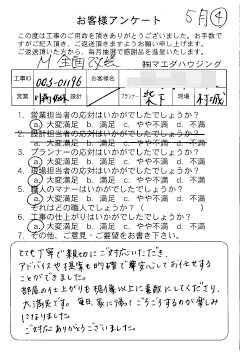 5月④
お客様アンケート
この度は工事のご用命を頂きありがとうございました。お手数で
すがご記入頂き、ご返送頂きますようお願い申し上げます。
ご返送頂いた方から、毎月抽選で感謝品を進呈いたします。
M 全面改装 ㈱マエダハウジング
工事ID 003-01196 お客様名
営業 設計 プランナー 柴下 現場 村成
1. 営業担当者の応対はいかがでしたでしょうか?
a. 大変満足 b. 満足 c. やや不満 d. 不満
2. 設計担当者の応対はいかがでしたでしょうか?
a. 大変満足 b. 満足 c. やや不満 d. 不満
3. プランナーの応対はいかがでしたでしょうか?
a. 大変満足 b. 満足 c. やや不満 d. 不満
4. 現場担当者の応対はいかがでしたでしょうか?
a. 大変満足 b. 満足 c. やや不満 d. 不満
5. 職人のマナーはいかがでしたでしょうか?
a. 大変満足 b. 満足 c. やや不満 d. 不満
それはどの職人でしょうか?( )
6. 工事の仕上がりはいかがでしたでしょうか?
a. 大変満足 b. 満足 c. やや不満 d. 不満
7. その他、ご意見・ご要望をお書き下さい。
とても丁寧で親切にご対応いただき、
アドバイスや提案も的確で安心してお任せする
ことができました。
部屋の仕上がりも想像以上に素敵にしてくださり、
大満足です。毎日、家に帰ってごろごろするのが楽しみ
になりました。
ご対応ありがとうございました。